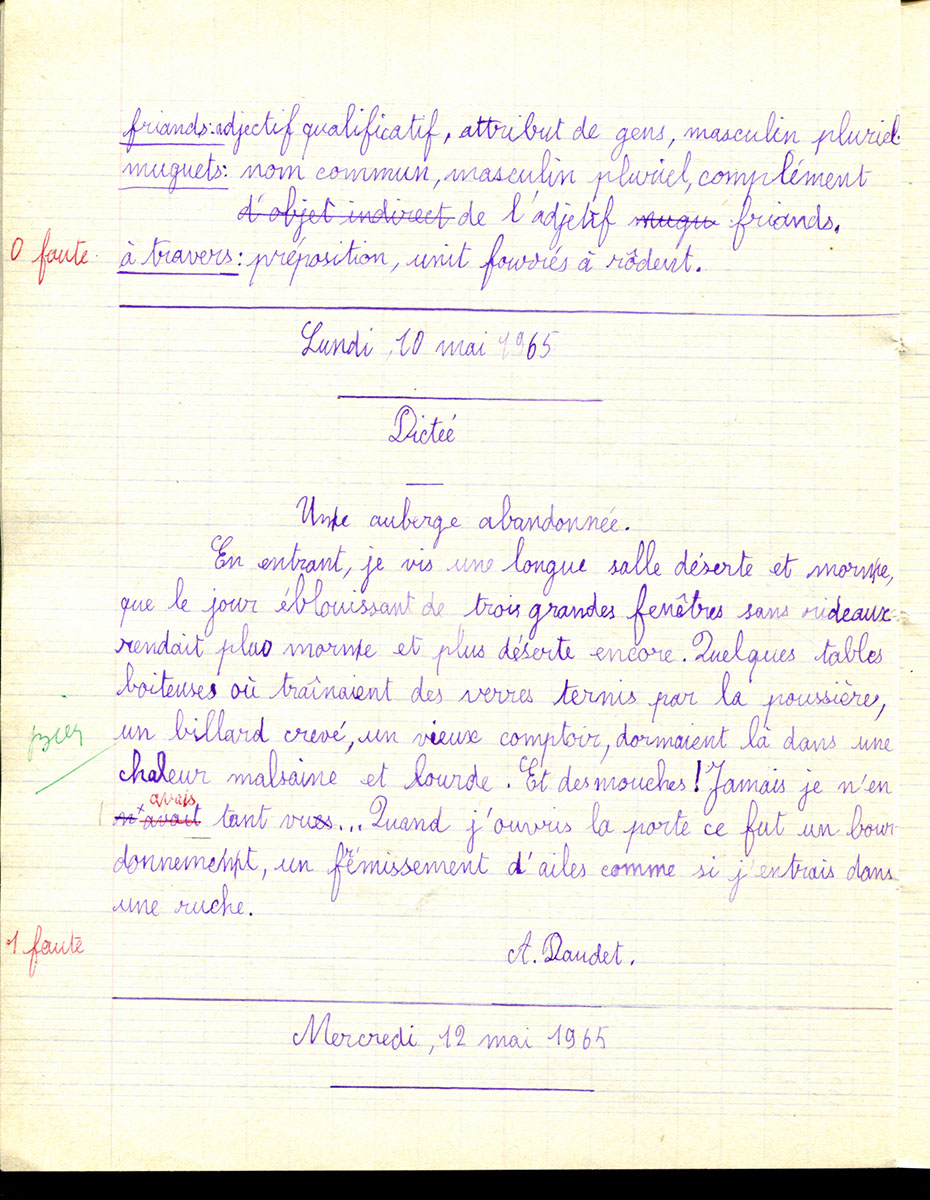 friands: adjectif qualificatif, attribut de gens, masculin pluriel.
muguets: nom commun, masculin pluriel, complément
d'objet indirect de l'adjetif mugu friands.
0 faute.
à travers: préposition, unit fourrés à rôdent.
Lundi, 10 mai 1965
Dictée
Une auberge abandonnée.
En entrant, je vis une longue salle déserte et morne,
que le jour éblouissant de trois grandes fenêtres sans rideaux
rendait plus morne et plus déserte encore. Quelques tables
boiteuses où traînaient des verres ternis par la poussière,
un billard crevé, un vieux comptoir, dormaient là dans une
chaleur malsaine et lourde. Et des mouches! Jamais je n'en
avais
1 n' avait tant vues... Quand j'ouvris la porte ce fut un bour
donnement, un frémissement d'ailes comme si j'entrais dans
une ruche.
1 faute
A. Daudet.
Mercredi, 12 mai 1965